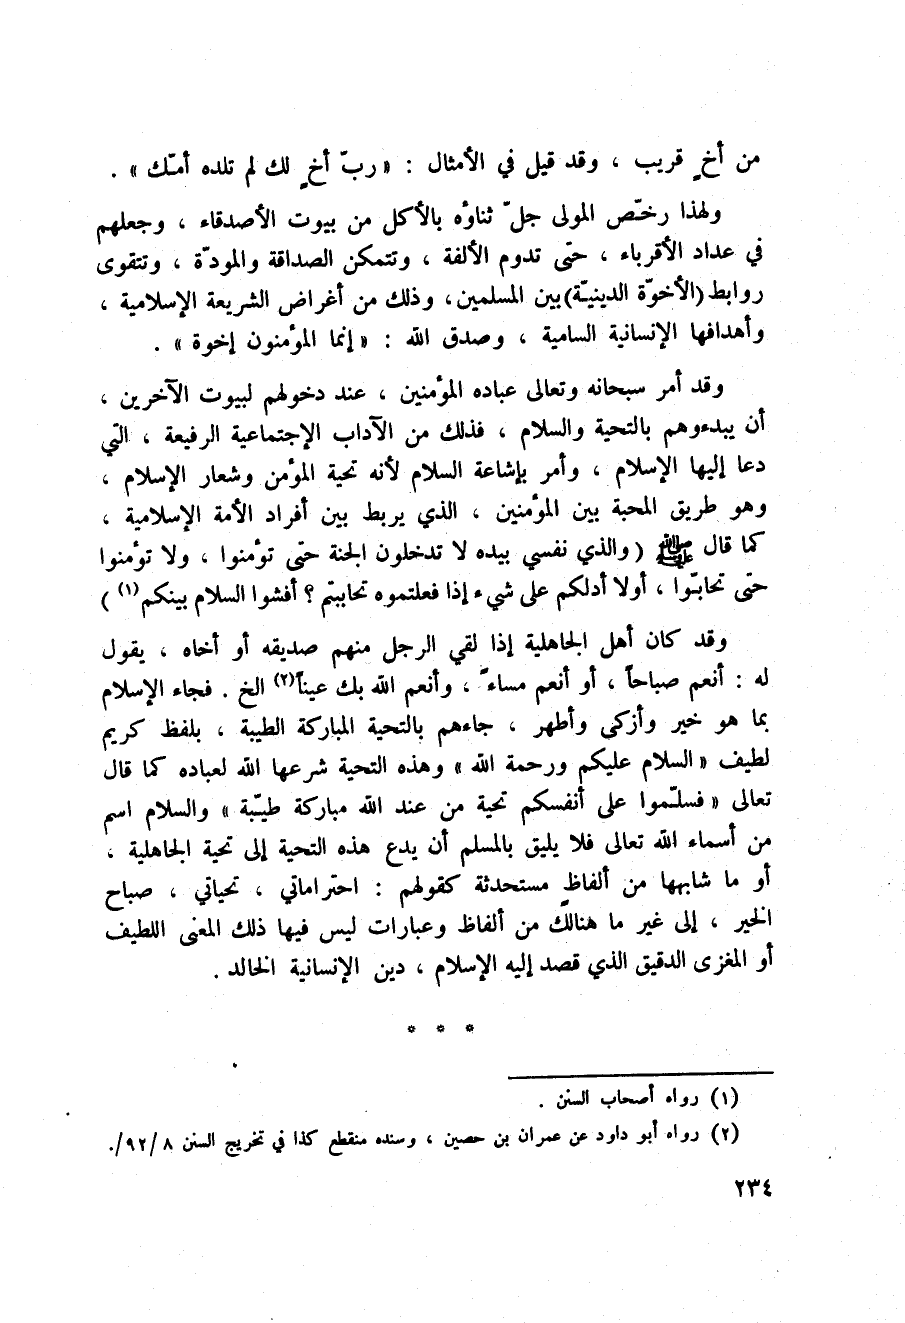 من أخٍ قريب ، وقد قيل في الأمثال : « ربّ أخٍ لك لم تلده أمّك » .
ولهذا رخّص المولى جلّ ثناؤه بالأكل من بيوت الأصدقاء ، وجعلهم
في عداد الأقرباء ، حتّى تدوم الألفة ، وتتمكن الصداقة والمودّة ، وتتقوى
روابط (الأخوّة الدينيّة) بين المسلمين ، وذلك من أغراض الشريعة الإسلامية ،
وأهدافها الإنسانية السامية ، وصدق الله : « إنما المؤمنون إخوة » .
وقد أمر سبحانه وتعالى عباده المؤمنين ، عند دخولهم لبيوت الآخرين ،
أن يبدءوهم بالتحية والسلام ، فذلك من الآداب الإجتماعية الرفيعة ، التي
دعا إليها الإسلام ، وأمر بإشاعة السلام لأنه تحية المؤمن وشعار الإسلام ،
وهو طريق المحبة بين المؤمنين ، الذي يربط بين أفراد الأمة الإسلامية ،
كما قال ﷺ ( والذي نفسي بيده لا تدخلون الجنة حتّى تؤمنوا ، ولا تؤمنوا
حتّى تحابّوا ، أولا أدلكم على شيء إذا فعلتموه تحاببتم ؟ أفشوا السلام بينكم (١) )
وقد كان أهل الجاهلية إذا لقي الرجل منهم صديقه أو أخاه ، يقول
له : أنعم صباحاً ، أو أنعم مساءً ، وأنعم الله بك عيناً (٢) الخ . فجاء الإسلام
بما هو خير وأزكى وأطهر ، جاءهم بالتحية المباركة الطيبة ، بلفظ كريم
لطيف « السلام عليكم ورحمة الله » وهذه التحية شرعها الله لعباده كما قال
تعالى « فسلّموا على أنفسكم تحية من عند الله مباركة طيّبة » والسلام اسم
من أسماء الله تعالى فلا يليق بالمسلم أن يدع هذه التحية إلى تحية الجاهلية ،
أو ما شابهها من ألفاظٍ مستحدثة كقولهم : احتراماتي ، تحياتي ، صباح
الخير ، إلى غير ما هنالك من ألفاظ وعبارات ليس فيها ذلك المعنى اللطيف
أو المغزى الدقيق الذي قصد إليه الإسلام ، دين الإنسانية الخالد .
* * *
(١) رواه أصحاب السنن .
(٢) رواه أبو داود عن عمران بن حصين ، وسنده منقطع كذا في تخريج السنن ٨ /٩٢/.
٢٣٤